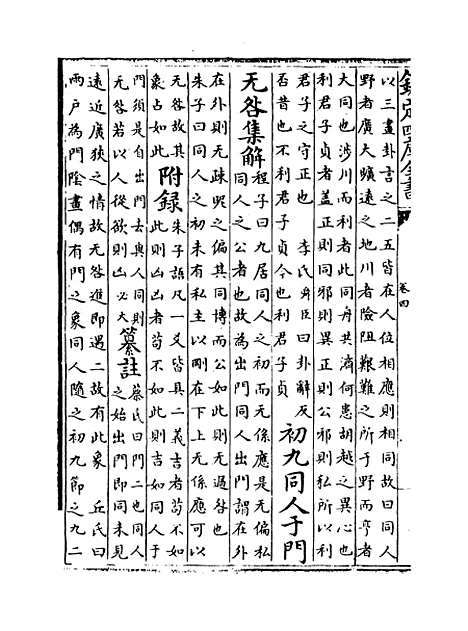 欽定四庫全書
卷四
以三畫卦言之二五皆在人位相應則相同故曰同人
野者廣大曠遠之地川者險阻艱難之所于野而亨者
大同也涉川而利者此同舟共濟何患胡越之異心也
利君子貞者蓋正則同邪則異正則公邪則私所以利
君子之守正也　李氏舜臣曰卦辭反
否昔也不利君子貞今也利君子貞
初九同人于門
无咎集解
程子曰九居同人之初而无係應是无偏私
同人之公者也故為出門同人出門謂在外
在外則无疎昵之偏其同博而公如此則无過咎也
朱子曰同人之初未有私主以剛在下上无係應可以
无咎故其
象占如此
附録
朱子語凡一爻皆具二義吉者苟不如
此則凶凶者苟不如此則吉如同人于
門須是自出門去與人同則
无咎若以人從欲則凶必大
纂註
蔡氏曰門二也同人
之始出門即同未見
遠近廣狹之情故无咎進即遇二故有此象　丘氏曰
兩戶為門陰畫偶有門之象同人隨之初九節之九二